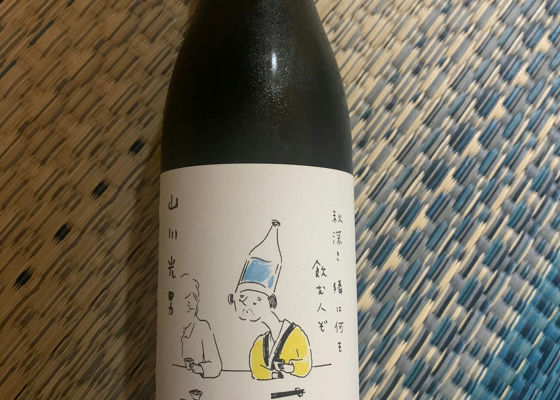 秋深き隣は何を
飲む人ぞ
山川光男